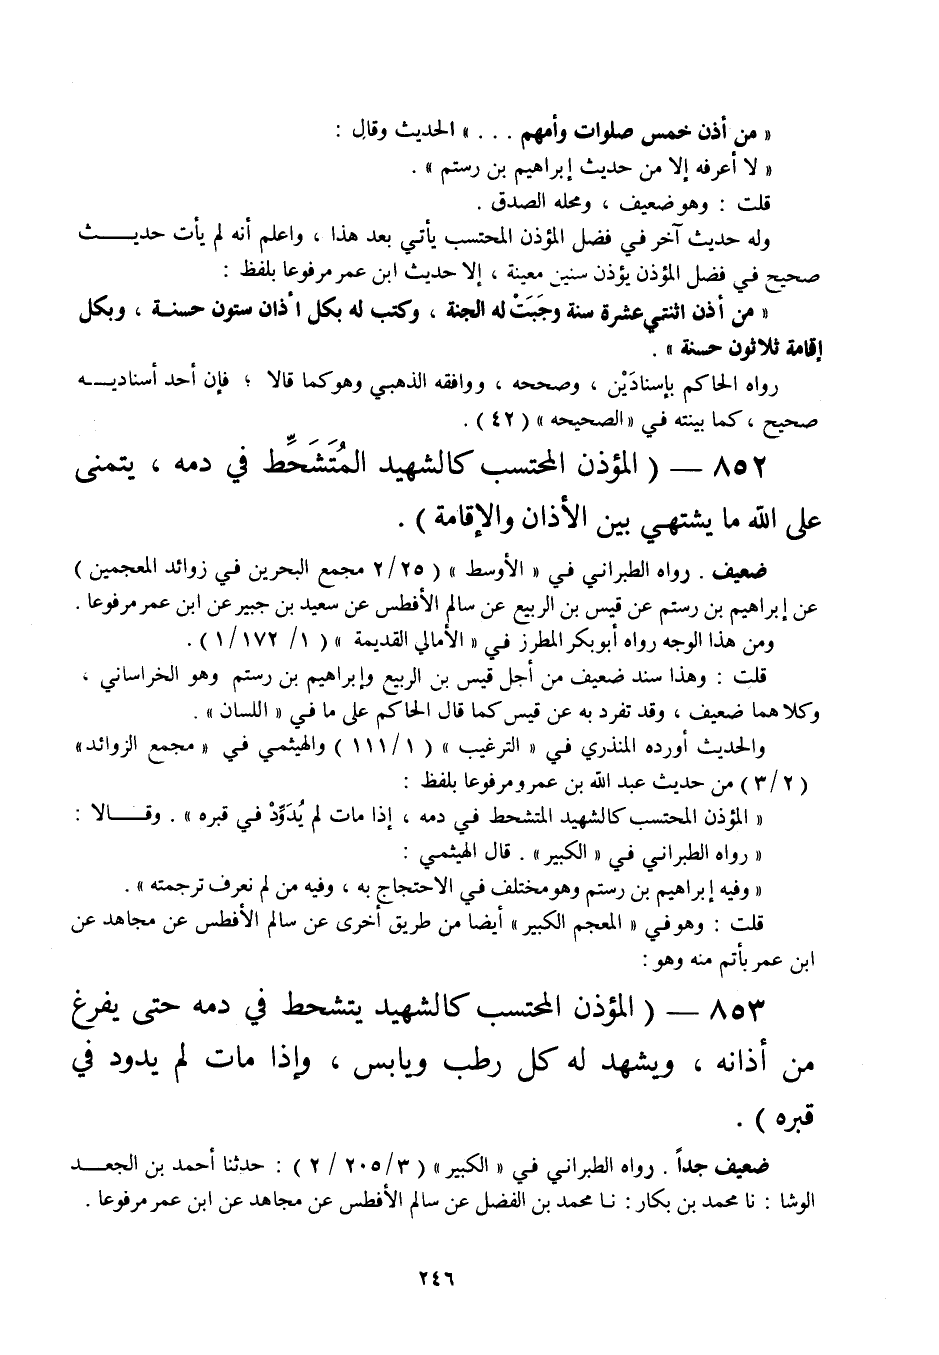 « من أذن خمس صلوات وأمهم . . . » الحديث وقال :
« لا أعرفه إلا من حديث إبراهيم بن رستم » .
قلت : وهو ضعيف ، ومحله الصدق .
وله حديث آخر في فضل المؤذن المحتسب يأتي بعد هذا ، واعلم أنه لم يأت حديـــث
صحيح في فضل المؤذن يؤذن سنين معينة ، إلا حديث ابن عمر مرفوعا بلفظ :
« من أذن اثنتي عشرة سنة وجَبَتْ له الجنة ، وكتب له بكل أذان ستون حسنـة ، وبكل
إقامة ثلاثون حسنة » .
رواه الحاكم بإسنادَيْن ، وصححه ، ووافقه الذهبي وهو كما قالا ؛ فإن أحد أسناديـــه
صحيح ، كما بينته في « الصحيحه » ( ٤٢ ) .
٨٥٢ — ( المؤذن المحتسب كالشهيد المُتَشَحِّط في دمه ، يتمنى
على الله ما يشتهي بين الأذان والإقامة ) .
ضعيف . رواه الطبراني في « الأوسط » ( ٢/٢٥ مجمع البحرين في زوائد المعجمين )
عن إبراهيم بن رستم عن قيس بن الربيع عن سالم الأفطس عن سعيد بن جبير عن ابن عمر مرفوعا .
ومن هذا الوجه رواه أبو بكر المطرز في « الأمالي القديمة » ( ١/ ١/١٧٢ ) .
قلت : وهذا سند ضعيف من أجل قيس بن الربيع وإبراهيم بن رستم وهو الخراساني ،
وكلاهما ضعيف ، وقد تفرد به عن قيس كما قال الحاكم على ما في « اللسان » .
والحديث أورده المنذري في « الترغيب » ( ١١١/١ ) والهيثمي في « مجمع الزوائد»
( ٣/٢ ) من حديث عبد الله بن عمرو مرفوعا بلفظ :
« المؤذن المحتسب كالشهيد المتشحط في دمه ، إذا مات لم يُدَوِّدْ في قبره » . وقـــالا :
« رواه الطبراني في « الكبير» . قال الهيثمي :
« وفيه إبراهيم بن رستم وهو مختلف في الاحتجاج به ، وفيه من لم نعرف ترجمته » .
قلت : وهو في « المعجم الكبير » أيضا من طريق أخرى عن سالم الأفطس عن مجاهد عن
ابن عمر بأتم منه وهو :
٨٥٣ — ( المؤذن المحتسب كالشهيد يتشحط في دمه حتى يفرغ
من أذانه ، ويشهد له كل رطب ويابس ، وإذا مات لم يدود في
قبره ) .
ضعيف جداً . رواه الطبراني في « الكبير» ( ٣/ ٢٠٥ / ٢ ) : حدثنا أحمد بن الجعـــد
الوشا : نا محمد بن بكار : نـا محمد بن الفضل عن سالم الأفطس عن مجاهد عن ابن عمر مرفوعا .
٢٤٦